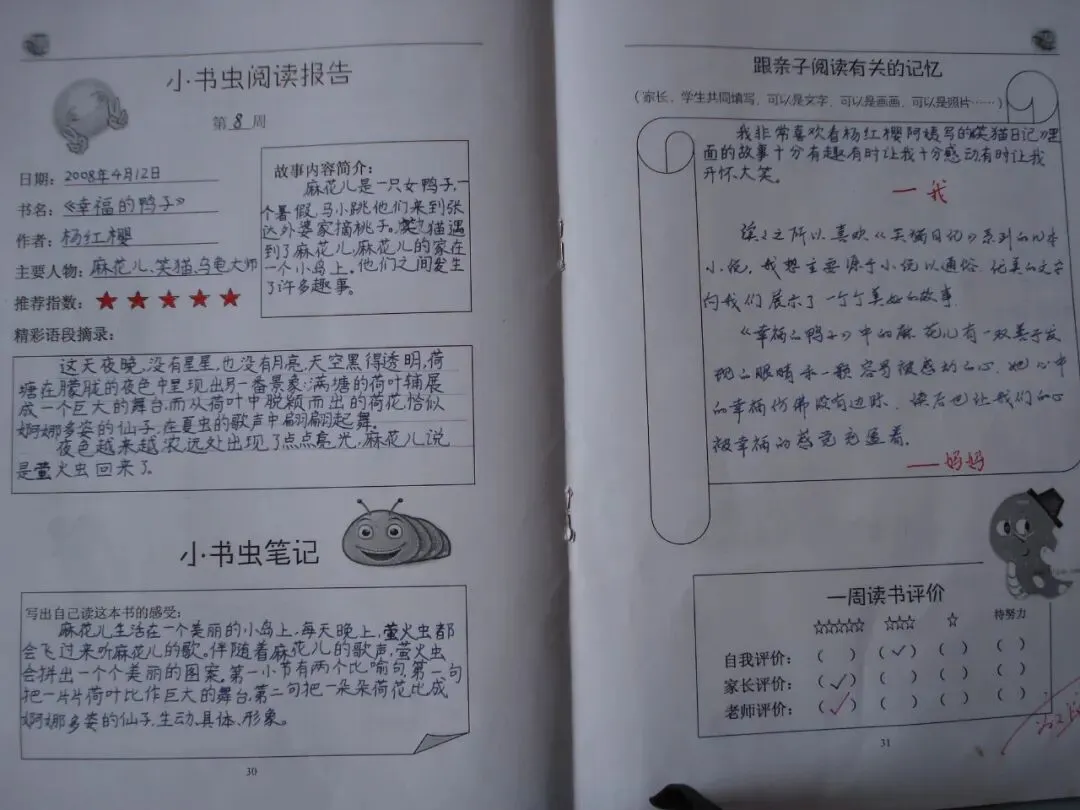 小书虫阅读报告
第 8 周
日期：2008年4月12日
书名：《幸福的鸭子》
作者：杨红樱
主要人物：麻花儿、笑猫、乌龟大师
推荐指数：★★★★★
故事内容简介：
麻花儿是一只女鸭子,一
个暑假,马小跳他们来到张
达外婆家摘桃子。笑猫遇
到了麻花儿,麻花儿的家在
一个小岛上。他们之间发生
了许多趣事。
精彩语段摘录：
这天夜晚,没有星星,也没有月亮,天空黑得透明,荷
塘在朦胧的夜色中呈现出另一番景象:满塘的荷叶铺展
成一个巨大的舞台,而从荷叶中脱颖而出的荷花恰似
婀娜多姿的仙子,在夏虫的歌声中翩翩起舞。
夜色越来越浓,远处出现了点点亮光,麻花儿说
是萤火虫回来了.
小书虫笔记
写出自己读这本书的感受：
麻花儿生活在一个美丽的小岛上,每天晚上,萤火虫都
会飞过来听麻花儿的歌。伴随着麻花儿的歌声,萤火虫
会拼出一个个美丽的图案。第一小节有两个比喻句,第一句
把一片片荷叶比作巨大的舞台,第二句把一朵朵荷花比成
婀娜多姿的仙子,生动、具体、形象。
30
跟亲子阅读有关的记忆
（家长、学生共同填写，可以是文字，可以是画画，可以是照片……）
我非常喜欢看杨红樱阿姨写的《笑猫日记》,里
面的故事十分有趣,有时让我十分感动,有时让我
开怀大笑。
—我
之所以喜欢《笑猫日记》系列的几本
小说，我想主要源于小说以通俗、优美的文字
向我们展示了一个个美好的故事.
《幸福的鸭子》中的麻花儿有一双善于发
现的眼睛和一颗容易被感动的心，她心中
的幸福仿佛没有边际，读后也让我们的心
被幸福的感觉充盈着.
——妈妈
一周读书评价
☆☆☆☆☆ ☆☆☆ ☆ 待努力
自我评价：（ ）（✓）（ ）（ ）
家长评价：（✓）（ ）（ ）（ ）
老师评价：（✓）（ ）（ ）（ ）
31